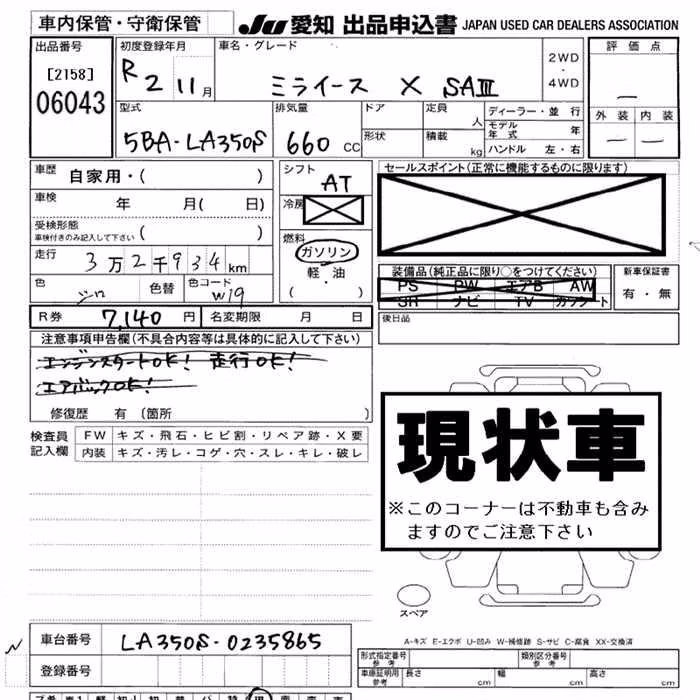 車内保管・守衛保管
JU 愛知 出品申込書 JAPAN USED CAR DEALERS ASSOCIATION
出品番号
[2158]
06043
初度登録年月
R 2 11月
車名・グレード
ミライース X SAⅢ
2WD
・
4WD
評価点
—
外装 内装
— —
型式
5BA-LA350S
排気量
660 CC
ドア
形状
定員
人
積載
kg
ディーラー・並行
モデル年式 年
ハンドル 左・右
車歴 自家用・( )
車検 年 月( 日)
受検形態
車検付きのみ記入して下さい ( )
走行 3万2千934km
色 シロ
色替
色コード W19
シフト
AT
冷房
燃料
ガソリン
軽・油
( ・ )
セールスポイント(正常に機能するものに限ります)
装備品(純正品に限り○をつけてください)
PS PW エアB AW
SR ナビ TV カワシート
新車保証書
有・無
後日品
R券 7,140 円 名変期限 月 日
注意事項申告欄(不具合内容等は具体的に記入して下さい)
エンジンスタートOK! 走行OK!
エアバックOK!
修復歴 有 (箇所 )
検査員
記入欄
FW キズ・飛石・ヒビ割・リペア跡・X要
内装 キズ・汚レ・コゲ・穴・スレ・キレ・破レ
現状車
※このコーナーは不動車も含み
ますのでご注意下さい
スペア
A-キズ E-エクボ U-凹み W-補修跡 S-サビ C-腐食 XX-交換済
車台番号 LA350S-0235865
登録番号
形式指定番号
参考
類別区分番号
参考
車庫証明用
参考
長さ cm 幅 cm 高さ cm